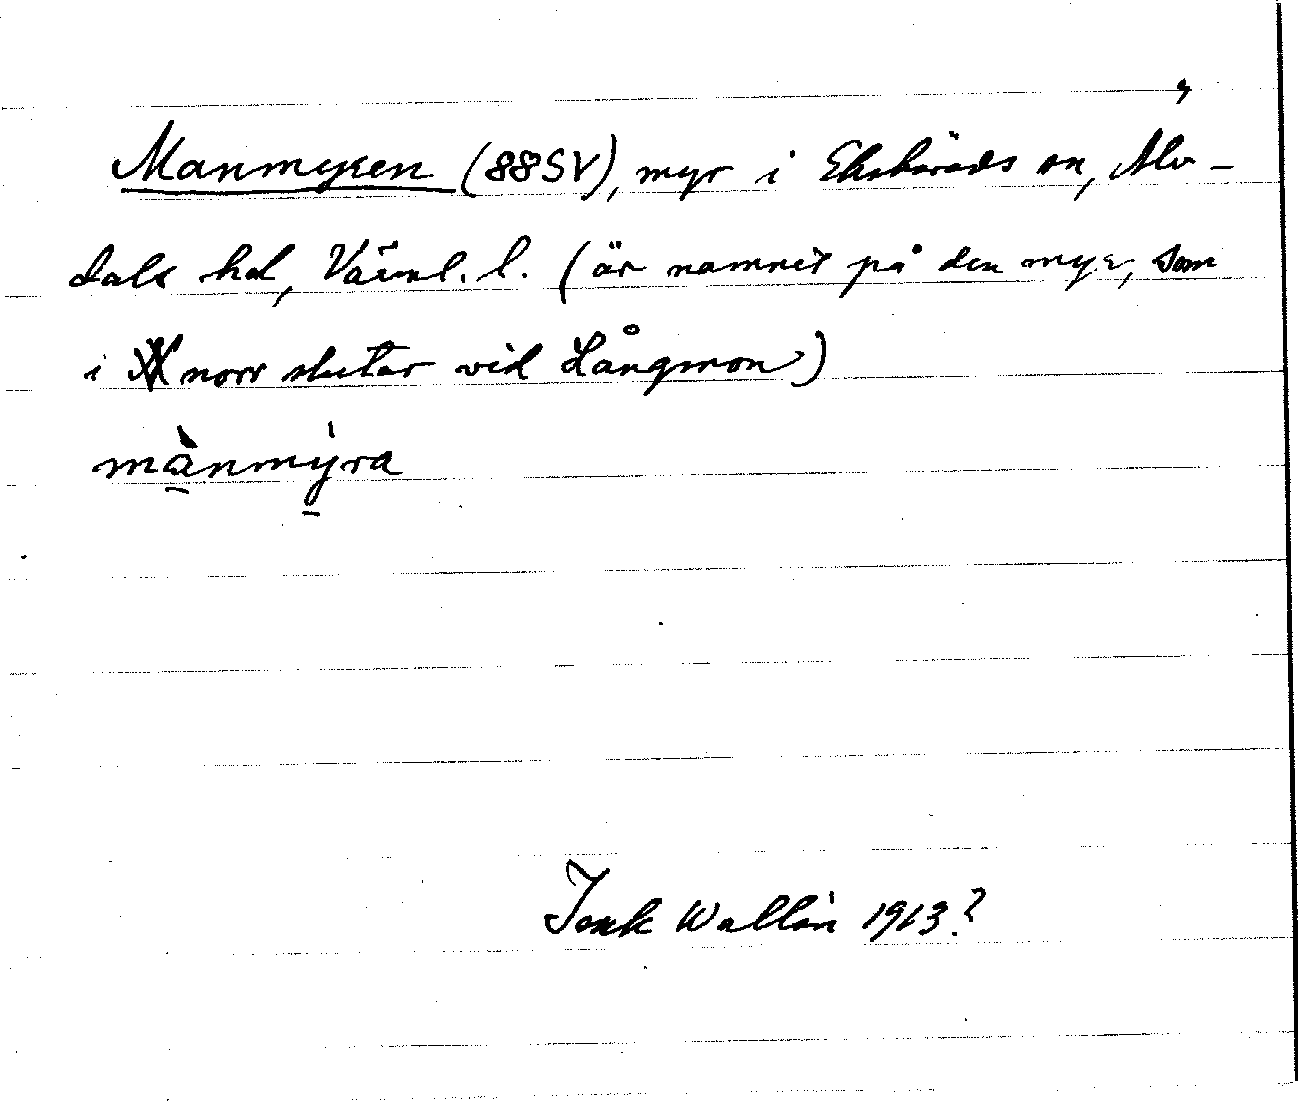 Manmyren (88SV), myr i Ekshärads sn, Älv-
dals hd, Värml. l. (är namnet på den myr, som
i norr slutar vid Långmon)
mànmýra
Isak Wallin 1913?